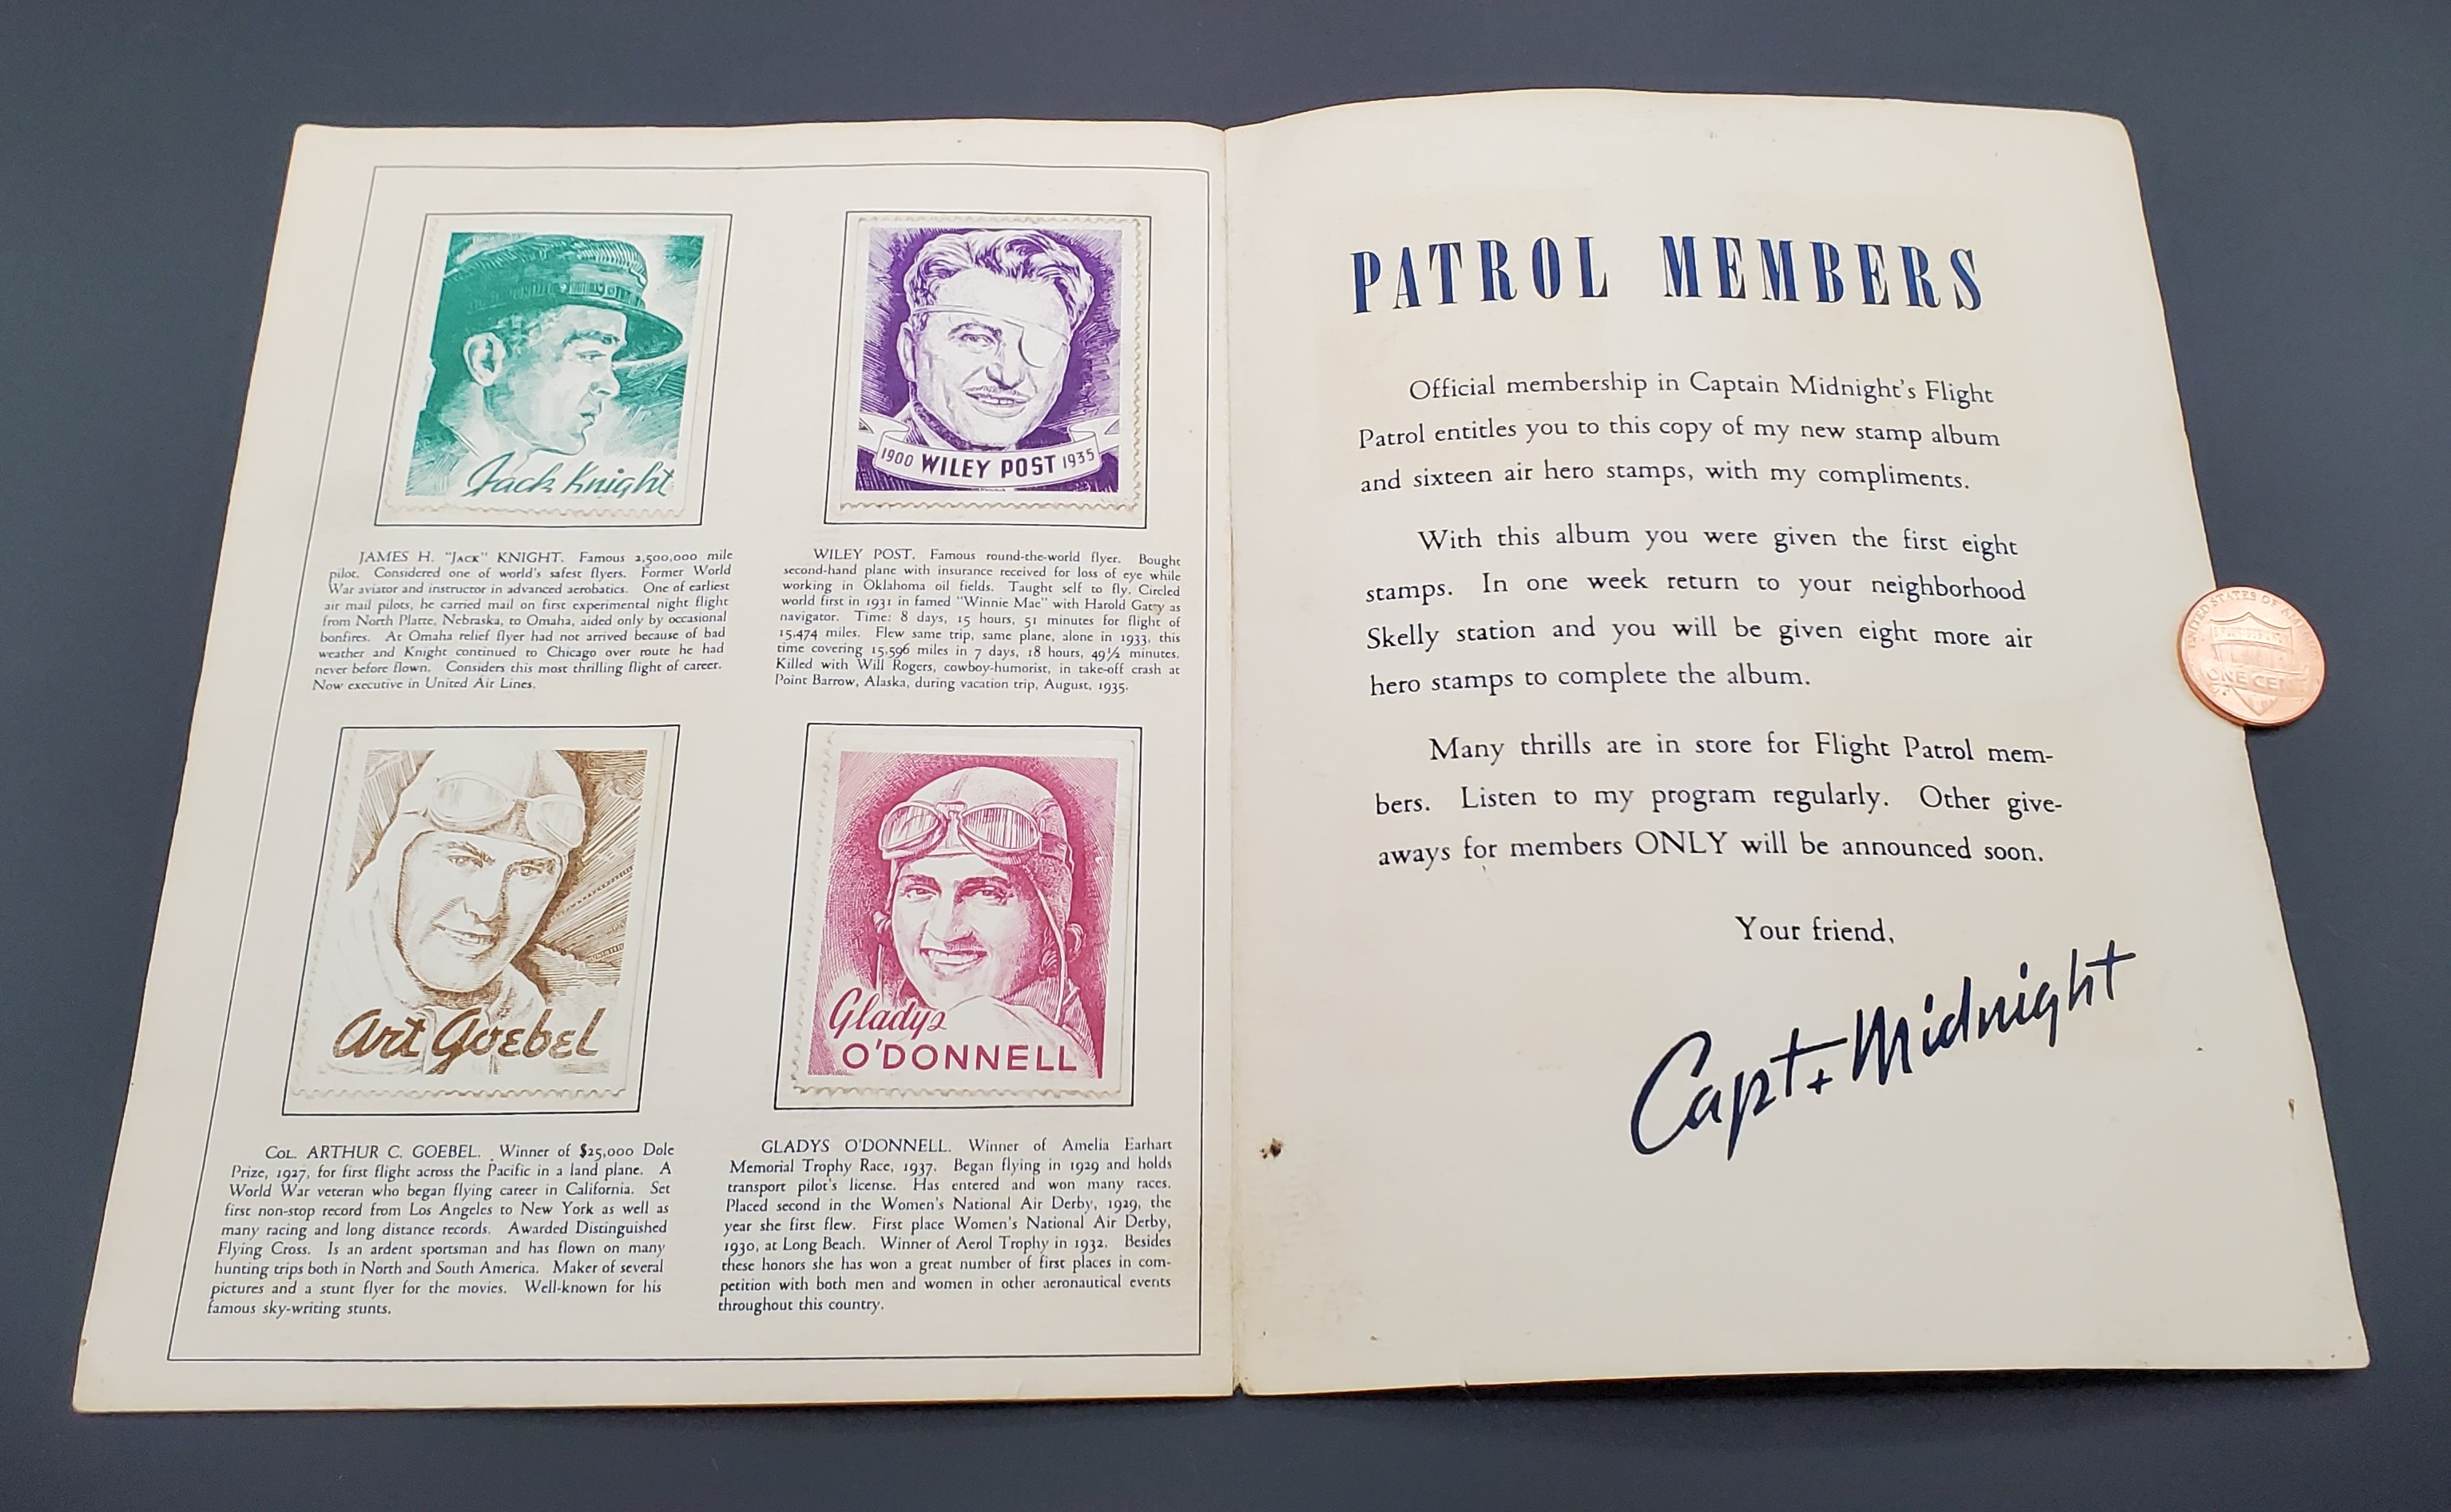 Jack Knight
JAMES H. "JACK" KNIGHT. Famous 2,500,000 mile
pilot. Considered one of world's safest flyers. Former World
War aviator and instructor in advanced aerobatics. One of earliest
air mail pilots, he carried mail on first experimental night flight
from North Platte, Nebraska, to Omaha, aided only by occasional
bonfires. At Omaha relief flyer had not arrived because of bad
weather and Knight continued to Chicago over route he had
never before flown. Considers this most thrilling flight of career.
Now executive in United Air Lines.
1900 WILEY POST 1935
WILEY POST. Famous round-the-world flyer. Bought
second-hand plane with insurance received for loss of eye while
working in Oklahoma oil fields. Taught self to fly. Circled
world first in 1931 in famed "Winnie Mae" with Harold Gatty as
navigator. Time: 8 days, 15 hours, 51 minutes for flight of
15,474 miles. Flew same trip, same plane, alone in 1933, this
time covering 15,596 miles in 7 days, 18 hours, 49½ minutes.
Killed with Will Rogers, cowboy-humorist, in take-off crash at
Point Barrow, Alaska, during vacation trip, August, 1935.
Art Goebel
COL. ARTHUR C. GOEBEL. Winner of $25,000 Dole
Prize, 1927, for first flight across the Pacific in a land plane. A
World War veteran who began flying career in California. Set
first non-stop record from Los Angeles to New York as well as
many racing and long distance records. Awarded Distinguished
Flying Cross. Is an ardent sportsman and has flown on many
hunting trips both in North and South America. Maker of several
pictures and a stunt flyer for the movies. Well-known for his
famous sky-writing stunts.
Gladys
O'DONNELL
GLADYS O'DONNELL. Winner of Amelia Earhart
Memorial Trophy Race, 1937. Began flying in 1929 and holds
transport pilot's license. Has entered and won many races.
Placed second in the Women's National Air Derby, 1929, the
year she first flew. First place Women's National Air Derby,
1930, at Long Beach. Winner of Aerol Trophy in 1932. Besides
these honors she has won a great number of first places in com-
petition with both men and women in other aeronautical events
throughout this country.
PATROL MEMBERS
Official membership in Captain Midnight's Flight
Patrol entitles you to this copy of my new stamp album
and sixteen air hero stamps, with my compliments.
With this album you were given the first eight
stamps. In one week return to your neighborhood
Skelly station and you will be given eight more air
hero stamps to complete the album.
Many thrills are in store for Flight Patrol mem-
bers. Listen to my program regularly. Other give-
aways for members ONLY will be announced soon.
Your friend,
Capt. Midnight
UNITED STATES OF
ONE CEN